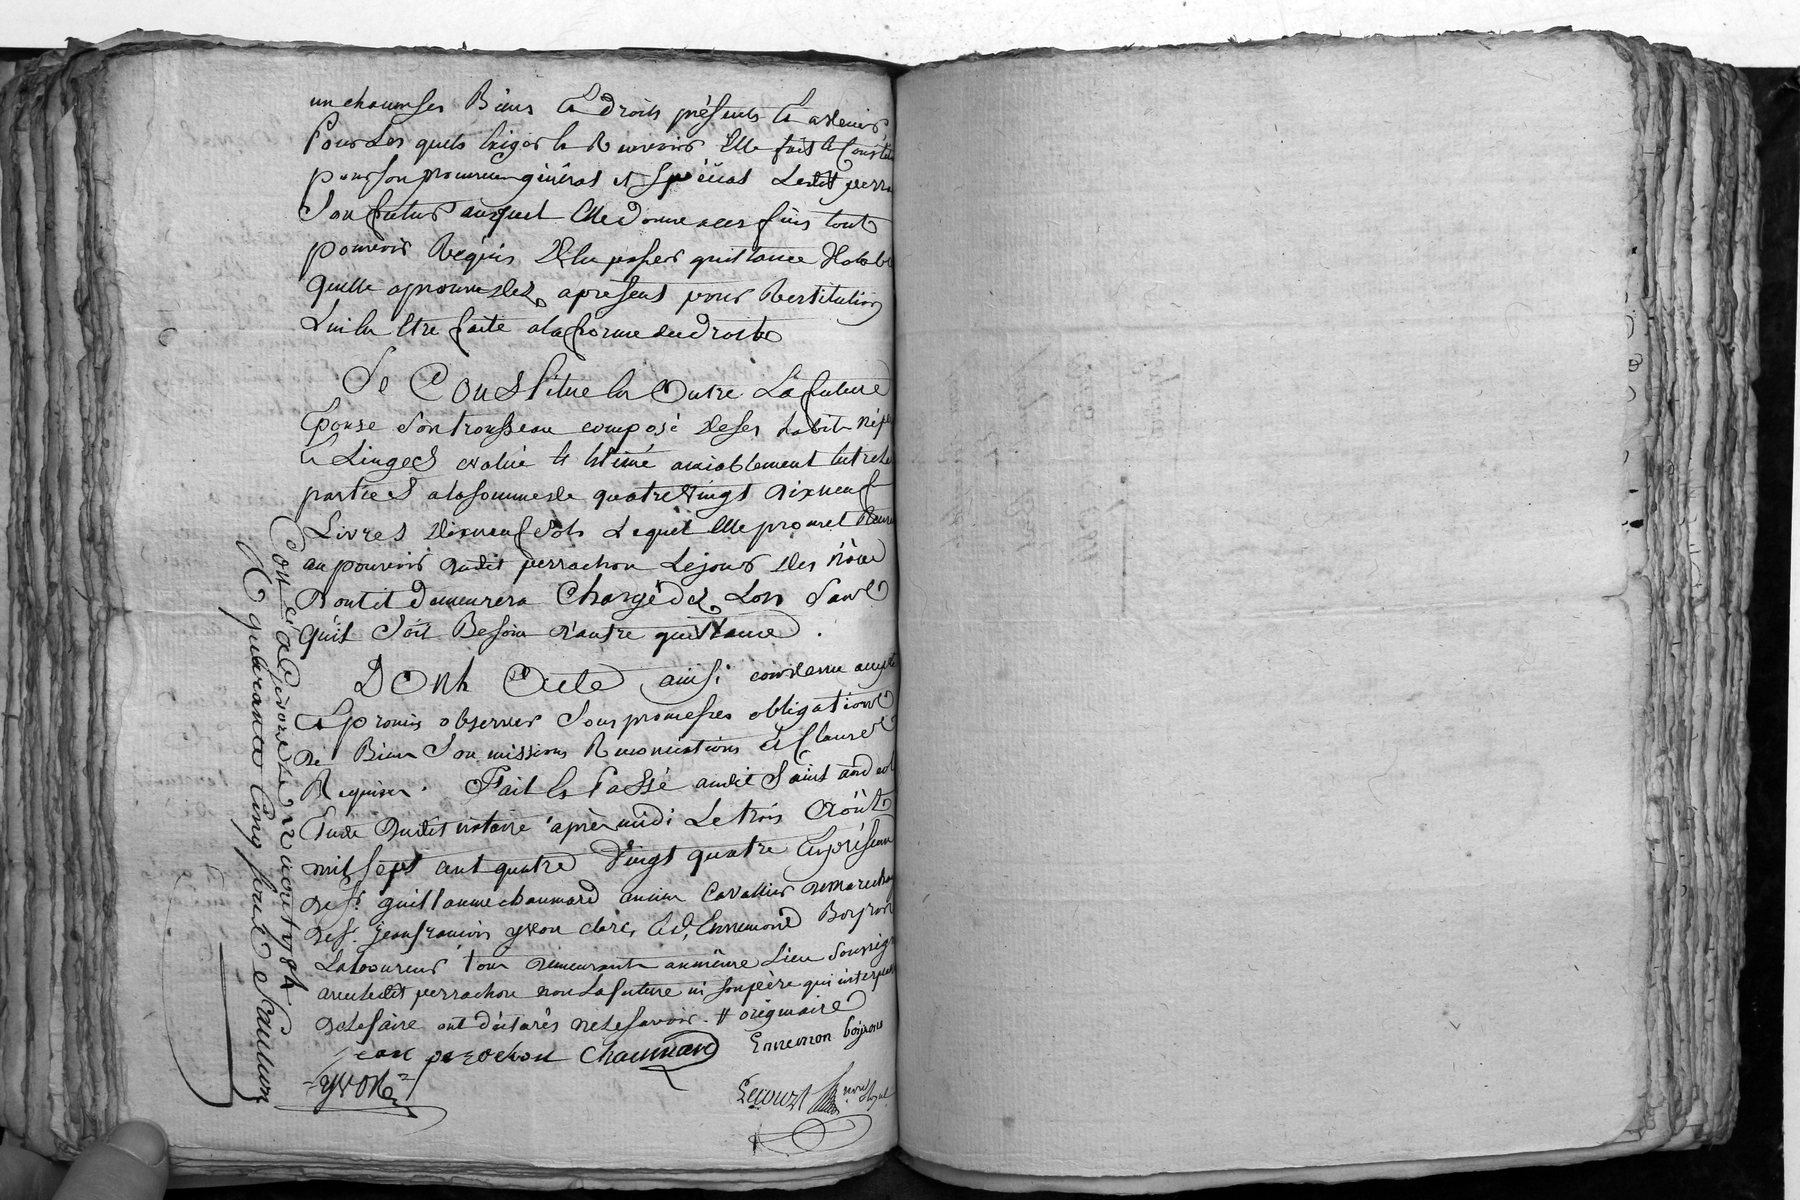 un chacun ses Biens et droits présents et avenir
Pour Les quels Exiger et Recevoir Elle fait et Constitue
pour son procureur général et spécial Ledit perra
Son futur auquel Elle donne a ces fins tout
pouvoir Requis de passer quittance
quelle aprouve des apresent pour Restitution
Lui En Etre faite a la forme du droit
Se Constitue En Outre La future
Epouse Son trousseau composé de ses habits nipes
et Linges evalué et Estimé amiablement Entre les
parties a la somme de quatre Vingt dix neuf
Livres dix neuf sols Lequel Elle promet
au pouvoir dudit perrachon Le jour des nôces
Dont il demeurera Chargé des Lors Sans
quil soit Besoin dautre quittance.
Dont Acte ainsi convenu accepté
et promis observer Sous promesses obligations
de Biens Soumissions Renonciations et Clauses
Requises. Fait et Passé audit Saint andeol
Etude dudit notaire après midi Le trois août
mil sept cent quatre Vingt quatre En présence
de sr. guillaume chaumard ancien Cavallier de marechau
de sr. jean francois yvon clerc, et d'Ennemond Boyron
Laboureur tous demeurants au même Lieu soussignés
avec Ledit perrachon non La future ni son père qui interpellés
de Le faire ont déclarés ne Le savoir. # originaire
jean perochon Chaumard Ennemon boiron
yvon
Lecourt nore. Royal
Con.lé a Givors Le 12 aout 1784
R quarante Cinq sols Saulnier